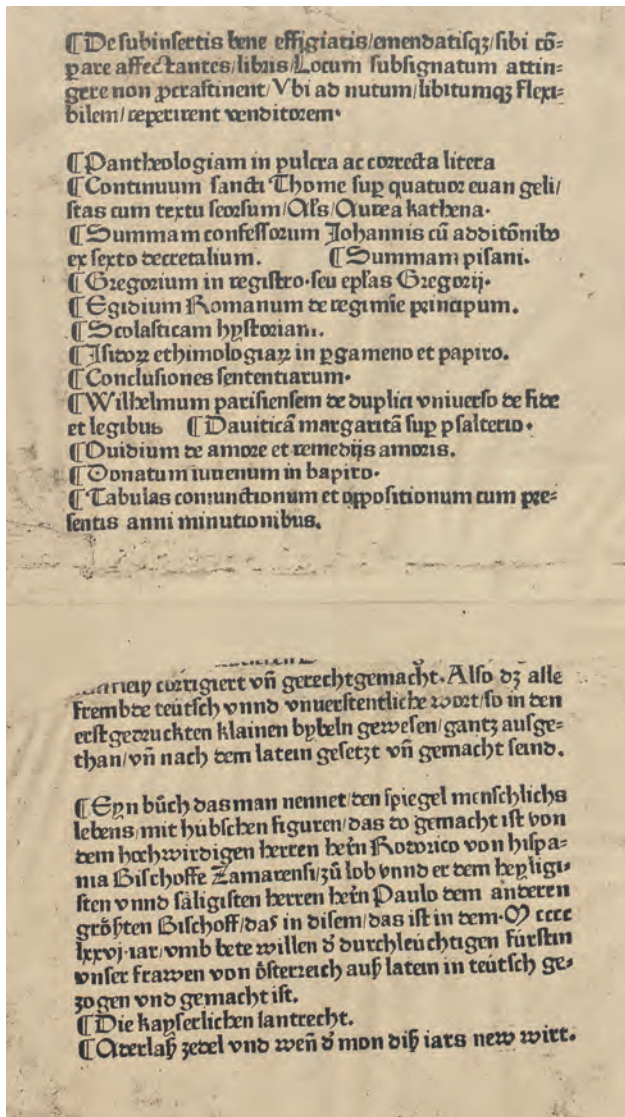 ⁋De subinsertis bene effigiatis/emendatisqȝ/sibi cō⸗
pare affectantes/libris/Locum subsignatum attin⸗
gere non ꝑcrastinent/Vbi ad nutum/libitumqȝ Flexi⸗
bilem/reperirent venditorem·
⁋Pantheologiam in pulcra ac correcta litera
⁋Continuum sancti Thome suꝑ quatuor euan geli/
stas cum textu seorsum/Al's/Aurea kathena·
⁋Summam confessorum Johannis cū additōnibꝰ
ex sexto decretalium. ⁋Summam pisani.
⁋Gregorium in registro·seu epl'as Gregorij·
⁋Egidium Romanum de regimīe principum.
⁋Scolasticam hystoriam.
⁋Jsidoꝝ ethimologiaꝝ in ꝑgameno et papiro.
⁋Conclusiones sententiarum·
⁋Wilhelmum parisiensem de duplici vniuerso de fide
et legibus ⁋Dauiticā margaritā suꝑ psalterio·
⁋Ouidium de amore et remedijs amoris.
⁋Donatum iuuenum in bapiro·
⁋Tabulas coniunctionum et oppositionum cum pre⸗
sentis anni minutionibus.
corrigiert vn̄ gerechtgemacht. Also dȝ alle
frembde teütsch vnnd vnuerstentliche wort/so in den
erstgedruckten klainen bybeln gewesen/gantz aufge⸗
than/vn̄ nach dem latein gesetzt vn̄ gemacht seind.
⁋Eyn bůch das man nennet/den spiegel menschlichs
lebens/mit hübschen figuren/das do gemacht ist von
dem hochwirdigen herren herr̄n Rodorico von hispa⸗
nia Bischoffe Zamorensi/zů lob vnnd er dem heyligi⸗
sten vnnd säligisten herren herr̄n Paulo dem anderen
grőßten Bischoff/das in disem/das ist in dem·M cccc
lxxvj·iar/vmb bete willen d' durchleüchtigen fürstin
vnser frawen von ősterreich auß latein in teütsch ge⸗
zogen vnd gemacht ist.
⁋Die kayserlichen lantrecht.
⁋Aderlaß zedel vnd weñ d' mon diß iars new wirt.